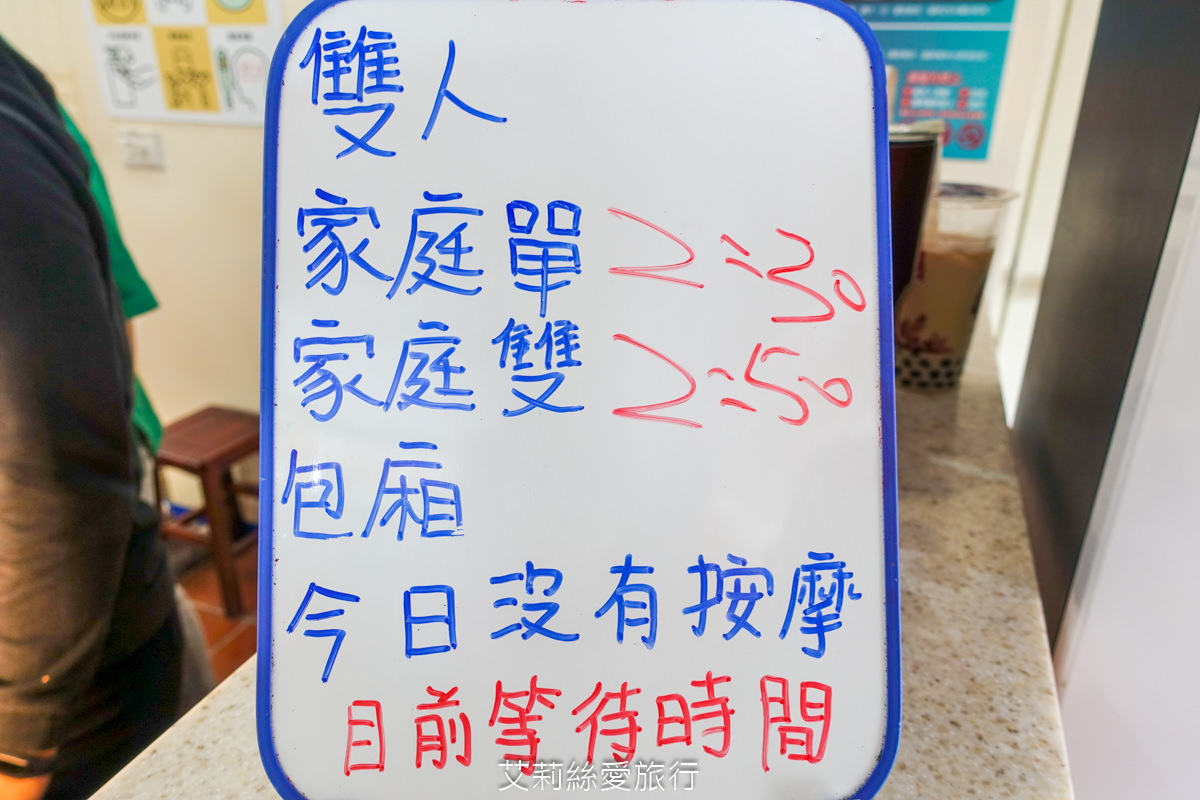 雙人
家庭單 2:30
家庭雙 2:50
包廂
今日沒有按摩
目前等待時間
艾莉絲愛旅行